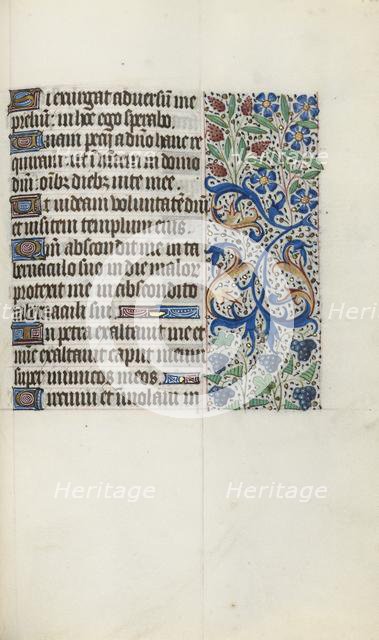 Si exurgat adversu͂ me
preliu͂: in hoc ego sperabo.
Unam pecii a dn͂o hanc re
quiram: ut inhabitem in domo
dn͂i: om͂ib; dieb; vite mee.
Ut videam voluntate͂ dn͂i
et visitem templum eius.
Quon͂ abscondit me in ta
bernaculo suo: in die malor͂
protexit me in abscondito
tabernaculi sui.
In petra exaltavit me: et
nunc exaltavit caput meum
super inimicos meos.
Circuivi et im͂olavi in
Heritage
Heritage
Heritage
Heritage